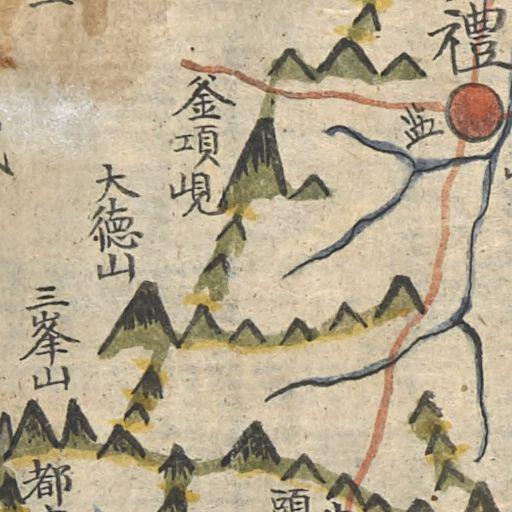 禮
監
釜項峴
大德山
三峯山
都
頭